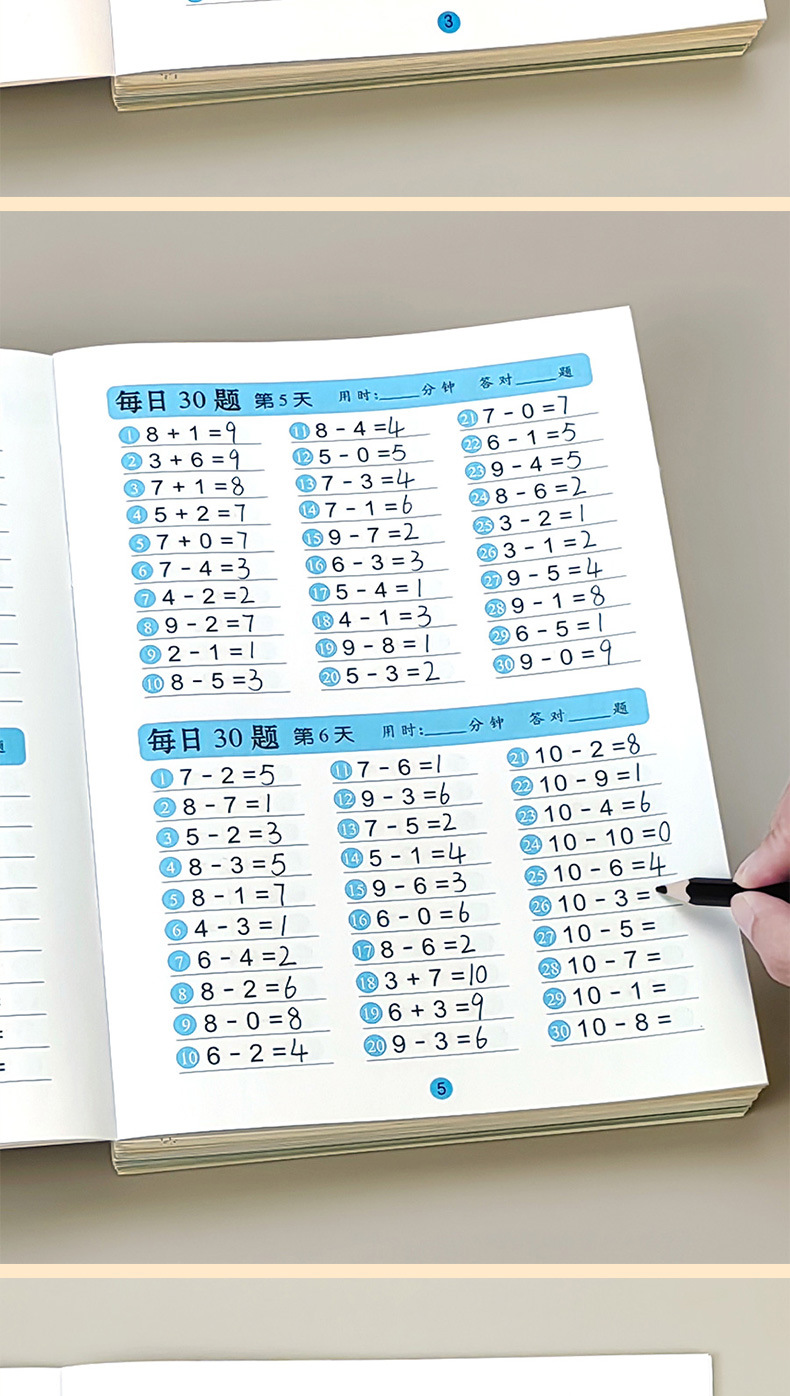 3
每日 30 题 第 5 天 用时:_____分钟 答对_____题
① 8 + 1 = 9
② 3 + 6 = 9
③ 7 + 1 = 8
④ 5 + 2 = 7
⑤ 7 + 0 = 7
⑥ 7 - 4 = 3
⑦ 4 - 2 = 2
⑧ 9 - 2 = 7
⑨ 2 - 1 = 1
⑩ 8 - 5 = 3
⑪ 8 - 4 = 4
⑫ 5 - 0 = 5
⑬ 7 - 3 = 4
⑭ 7 - 1 = 6
⑮ 9 - 7 = 2
⑯ 6 - 3 = 3
⑰ 5 - 4 = 1
⑱ 4 - 1 = 3
⑲ 9 - 8 = 1
⑳ 5 - 3 = 2
㉑ 7 - 0 = 7
㉒ 6 - 1 = 5
㉓ 9 - 4 = 5
㉔ 8 - 6 = 2
㉕ 3 - 2 = 1
㉖ 3 - 1 = 2
㉗ 9 - 5 = 4
㉘ 9 - 1 = 8
㉙ 6 - 5 = 1
㉚ 9 - 0 = 9
题
每日 30 题 第 6 天 用时:_____分钟 答对_____题
① 7 - 2 = 5
② 8 - 7 = 1
③ 5 - 2 = 3
④ 8 - 3 = 5
⑤ 8 - 1 = 7
⑥ 4 - 3 = 1
⑦ 6 - 4 = 2
⑧ 8 - 2 = 6
⑨ 8 - 0 = 8
⑩ 6 - 2 = 4
⑪ 7 - 6 = 1
⑫ 9 - 3 = 6
⑬ 7 - 5 = 2
⑭ 5 - 1 = 4
⑮ 9 - 6 = 3
⑯ 6 - 0 = 6
⑰ 8 - 6 = 2
⑱ 3 + 7 = 10
⑲ 6 + 3 = 9
⑳ 9 - 3 = 6
㉑ 10 - 2 = 8
㉒ 10 - 9 = 1
㉓ 10 - 4 = 6
㉔ 10 - 10 = 0
㉕ 10 - 6 = 4
㉖ 10 - 3 =
㉗ 10 - 5 =
㉘ 10 - 7 =
㉙ 10 - 1 =
㉚ 10 - 8 =
5